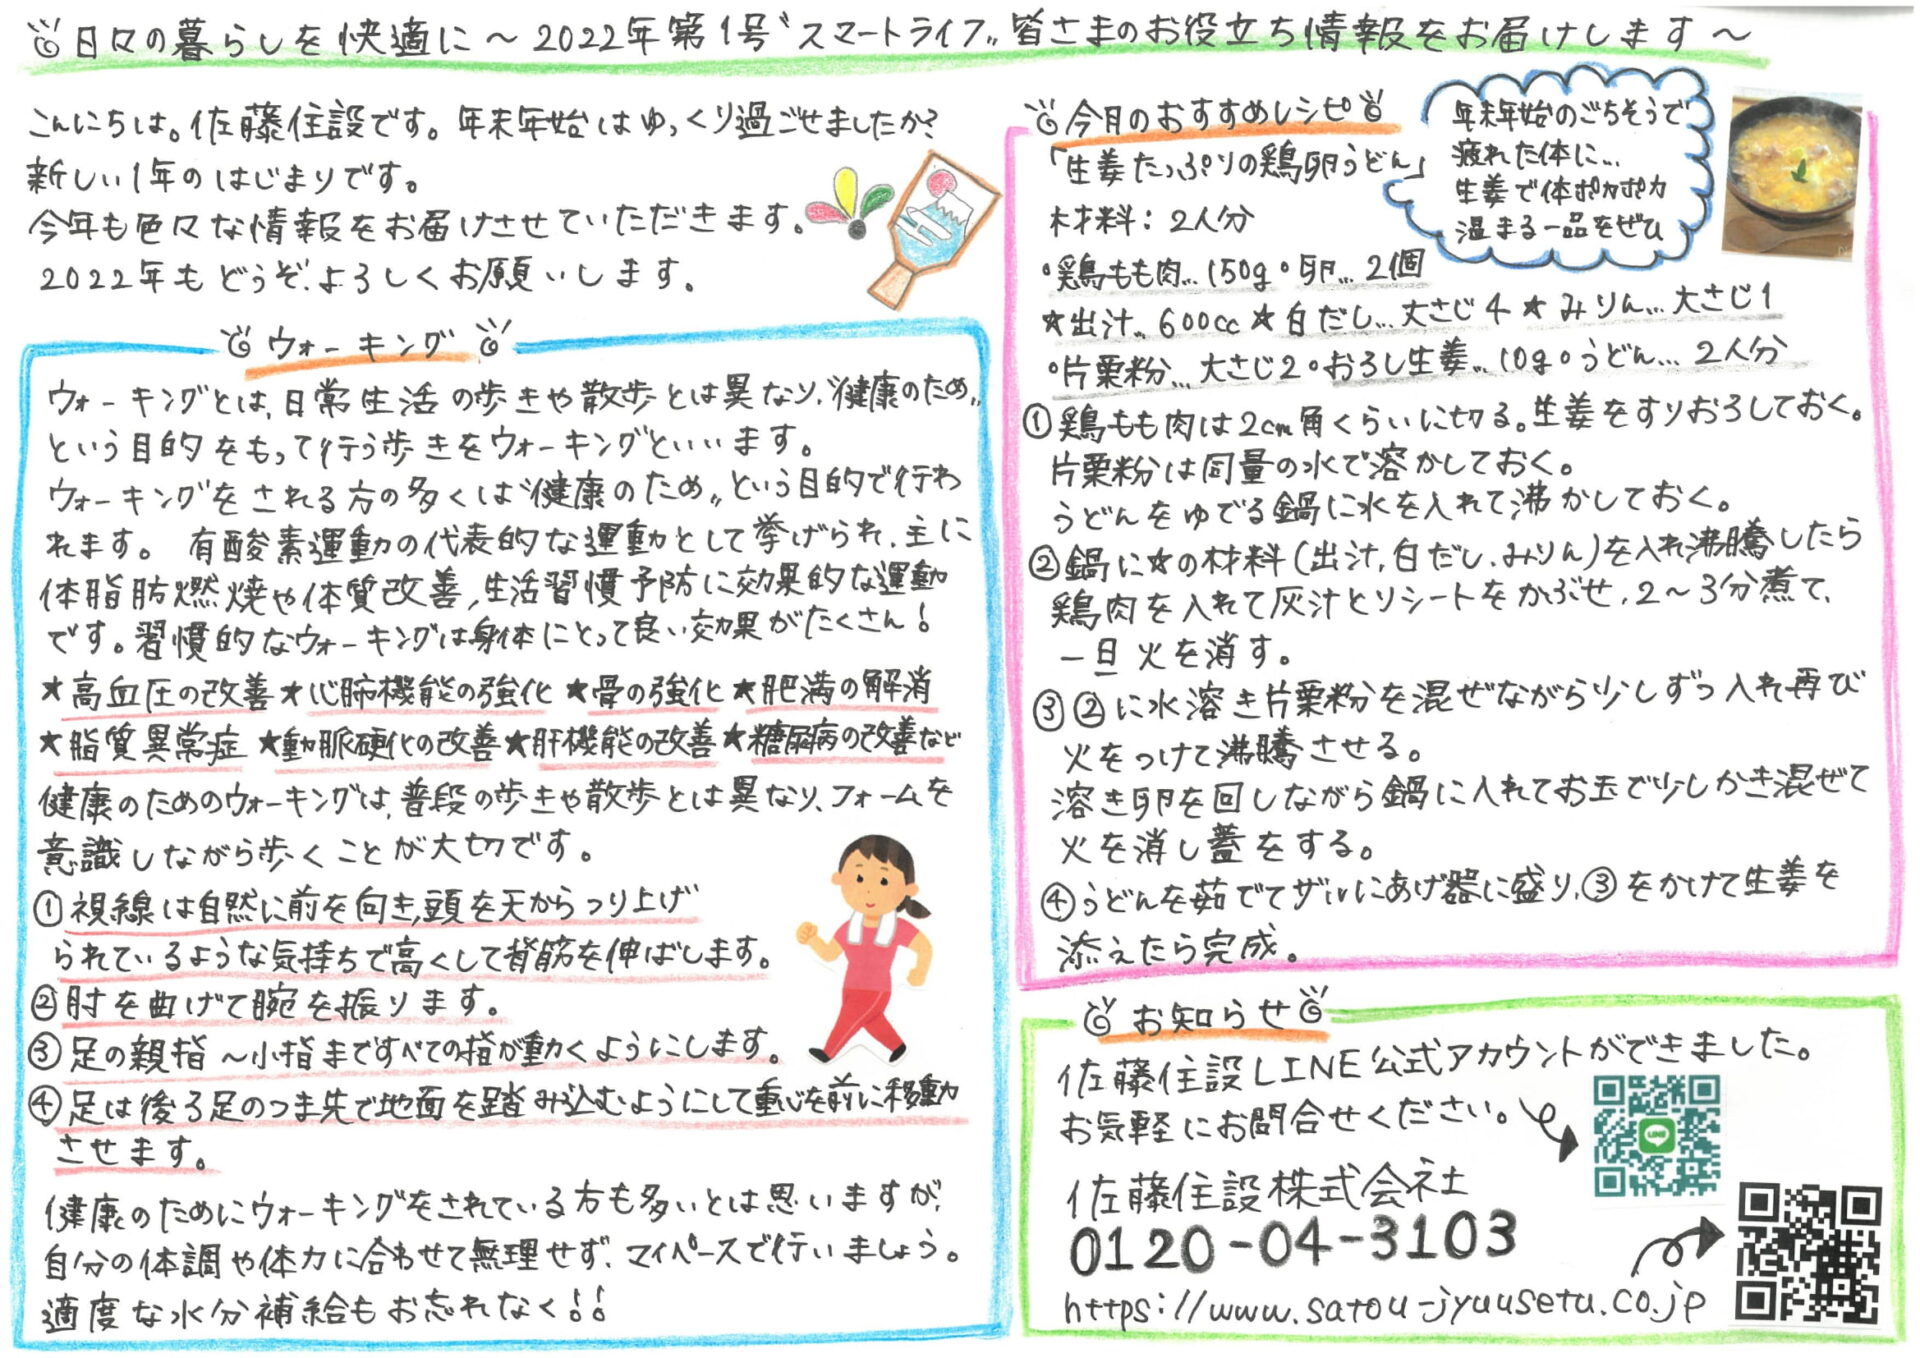 日々の暮らしを快適に～2022年第1号〝スマートライフ〟皆さまのお役立ち情報をお届けします～
こんにちは。佐藤住設です。年末年始はゆっくり過ごせましたか?
新しい1年のはじまりです。
今年も色々な情報をお届けさせていただきます。
2022年もどうぞ、よろしくお願いします。
ウォーキング
ウォーキングとは、日常生活の歩きや散歩とは異なり、〝健康のため〟
という目的をもって行う歩きをウォーキングといいます。
ウォーキングをされる方の多くは〝健康のため〟という目的で行わ
れます。 有酸素運動の代表的な運動として挙げられ、主に
体脂肪燃焼や体質改善、生活習慣予防に効果的な運動
です。習慣的なウォーキングは身体にとって良い効果がたくさん!
★高血圧の改善★心肺機能の強化 ★骨の強化 ★肥満の解消
★脂質異常症 ★動脈硬化の改善★肝機能の改善★糖尿病の改善など
健康のためのウォーキングは、普段の歩きや散歩とは異なり、フォームを
意識しながら歩くことが大切です。
①視線は自然に前を向き、頭を天からつり上げ
られているような気持ちで高くして背筋を伸ばします。
②肘を曲げて腕を振ります。
③足の親指～小指まですべての指が動くようにします。
④足は後ろ足のつま先で地面を踏み込むようにして重心を前に移動
させます。
健康のためにウォーキングをされている方も多いとは思いますが、
自分の体調や体力に合わせて無理せず、マイペースで行いましょう。
適度な水分補給もお忘れなく!!
今月のおすすめレシピ
「生姜たっぷりの鶏卵うどん」
年末年始のごちそうで
疲れた体に…
生姜で体ポカポカ
温まる一品をぜひ
材料：2人分
•鶏もも肉…150g•卵…2個
★出汁…600cc★白だし…大さじ4★みりん…大さじ1
•片栗粉…大さじ2•おろし生姜…10g•うどん…2人分
①鶏もも肉は2cm角くらいに切る。生姜をすりおろしておく。
片栗粉は同量の水で溶かしておく。
うどんをゆでる鍋に水を入れて沸かしておく。
②鍋に★の材料(出汁,白だし,みりん)を入れ沸騰したら
鶏肉を入れて灰汁とりシートをかぶせ、2～3分煮て、
一旦火を消す。
③②に水溶き片栗粉を混ぜながら少しずつ入れ再び
火をつけて沸騰させる。
溶き卵を回しながら鍋に入れてお玉で少しかき混ぜて
火を消し蓋をする。
④うどんを茹でてザルにあげ器に盛り、③をかけて生姜を
添えたら完成。
お知らせ
佐藤住設LINE公式アカウントができました。
お気軽にお問合せください。
LINE
佐藤住設株式会社
0120-04-3103
https://www.satou-jyuusetu.co.jp